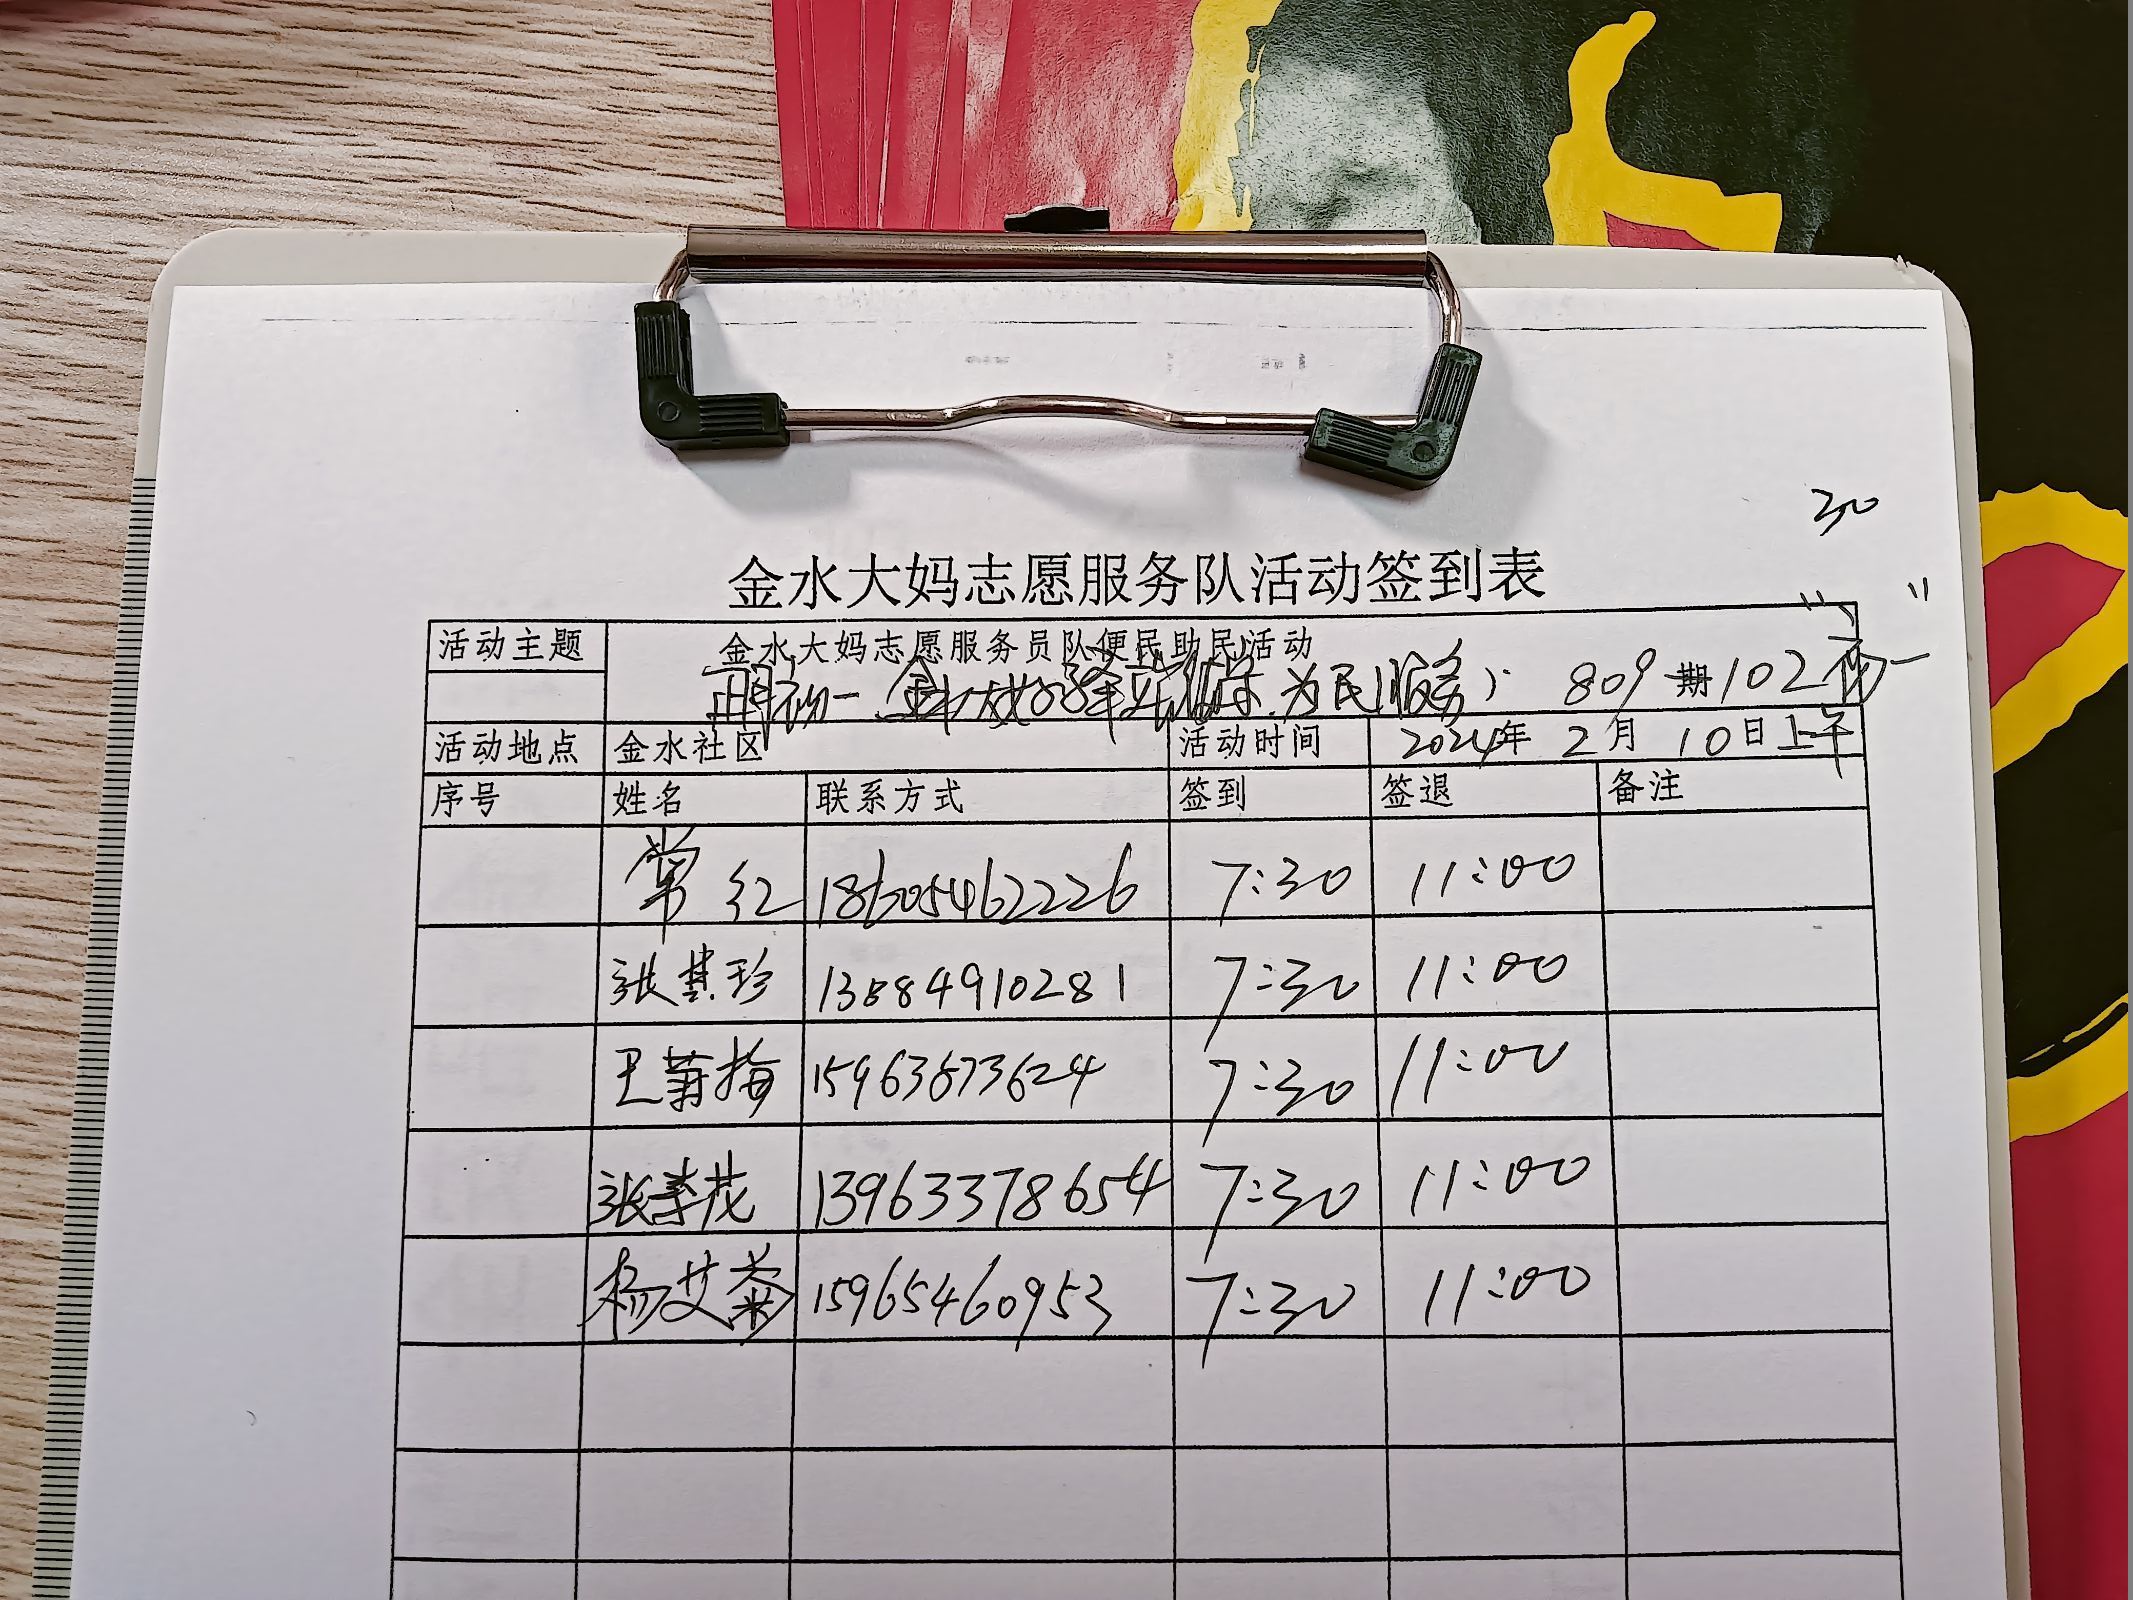 30
金水大妈志愿服务队活动签到表
活动主题 金水大妈志愿服务员队便民助民活动
正月初一 金水大妈 为民服务 809期102
活动地点 金水社区 活动时间 2024年 2月 10日上午
序号 姓名 联系方式 签到 签退 备注
常红 18605462226 7:30 11:00
张其珍 13884910281 7:30 11:00
王菊梅 15963873624 7:30 11:00
张孝茂 13963378654 7:30 11:00
杨艾菊 15965460953 7:30 11:00